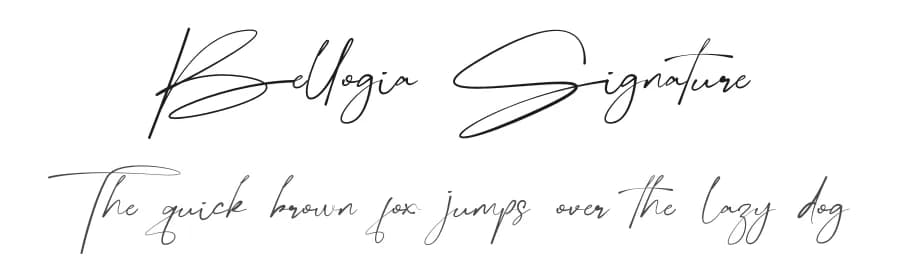 Bellogia Signature
The quick brown fox jumps over the lazy dog